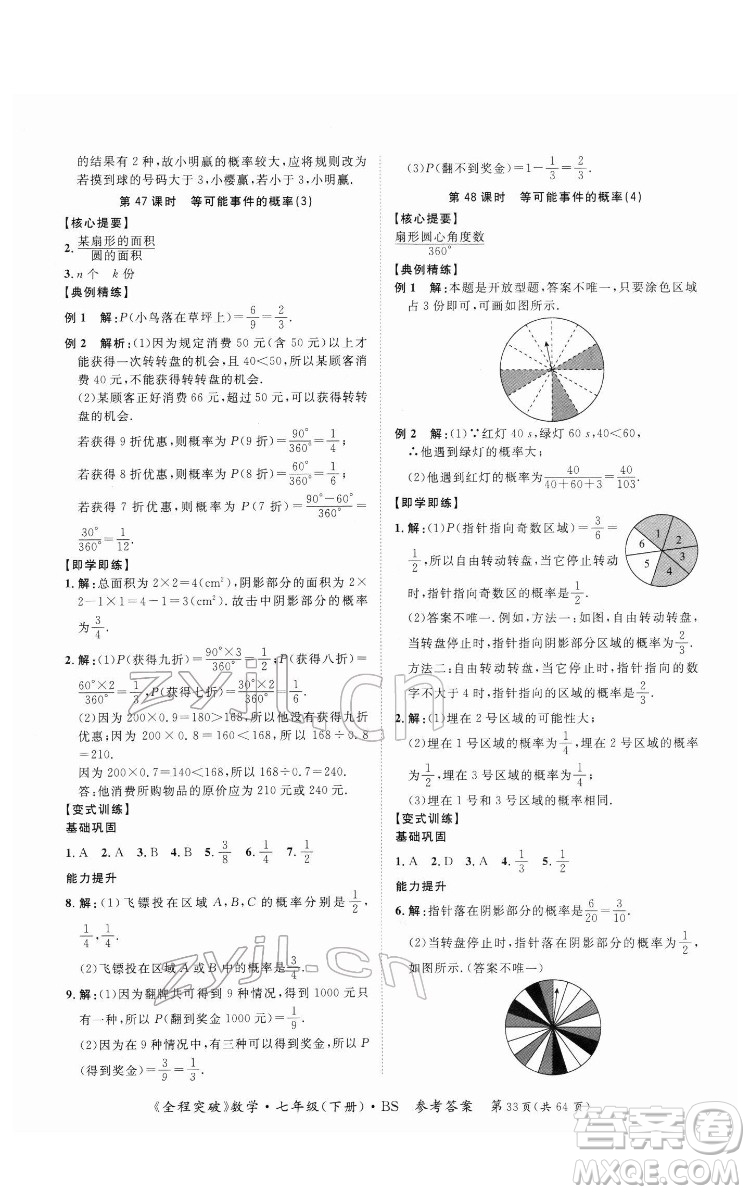 的结果有 2 种,故小明赢的概率较大,应将规则改为
若摸到球的号码大于 3,小樱赢,否则小明赢.
第 47 课时 等可能事件的概率(3)
【核心提要】
2. 某扇形的面积/圆的面积
3. n 个 k 份
【典例精练】
例 1 解:P(小鸟落在草坪上)=6/9=2/3.
例 2 解析:(1)因为规定消费 50 元(含 50 元)以上才
能获得一次转转盘的机会,且 40<50,所以某顾客消
费 40 元,不能获得转转盘的机会.
(2)某顾客正好消费 66 元,超过 50 元,可以获得转转
盘的机会.
若获得 9 折优惠,则概率为 P(9 折)=90°/360°=1/4;
若获得 8 折优惠,则概率为 P(8 折)=60°/360°=1/6;
若获得 7 折优惠,则概率为 P(7 折)=90°-60°/360°=
30°/360°=1/12.
【即学即练】
1. 解:总面积为 2×2=4(cm²),阴影部分的面积为 2×
2-1×1=3(cm²). 故击中阴影部分的概率
为3/4.
2. 解:(1)P(获得九折)=90°×3/360°,P(获得八折)=
60°×2/360°=1/3,P(获得七折)=30°×2/360°=1/6.
(2)因为 200×0.9=180>168,所以他没有获得九折
优惠;因为 200×0.8=160<168,所以 168÷0.8
=210.
因为 200×0.7=140<168,所以 168÷0.7=240.
答:他所购物品的原价应为 210 元或 240 元.
【变式训练】
基础巩固
1. A 2. A 3. B 4. B 5. 3/8 6. 1/4 7. 1/2
能力提升
8. 解:(1)飞镖投在区域 A,B,C 的概率分别为1/2,
1/4,1/4.
(2)飞镖投在区域 A 或 B 中的概率是3/4.
9. 解:(1)因为翻牌共可得到 9 种情况,得到 1000 元的
情况有 1 种,所以 P(翻到奖金 1000 元)=1/9.
(2)因为在 9 种情况中,有三种可得到奖金,所以
P(翻到奖金)=3/9=1/3.
(3)P(翻不到奖金)=1-1/3=2/3.
第 48 课时 等可能事件的概率(4)
【核心提要】
扇形圆心角度数/360°
【典例精练】
例 1 解:本题是开放型题,答案不唯一,只要涂色区域
占 3 份即可,可画如图所示.
例 2 解:(1)∵红灯 40 s,绿灯 60 s,40<60,
∴他遇到绿灯的概率大;
(2)他遇到红灯的概率为40/40+60+3=40/103.
【即学即练】
1. 解:(1)P(指针指向奇数区域)=3/6=
1/2,所以自由转动转盘,当它停止转动
时,指针指向奇数区的概率是1/2.
1
2
3
4
5
6
(2)答案不唯一. 例如,方法一:如图,自由转动转盘,
当转盘停止时,指针指向阴影部分区域的概率为2/3.
方法二:自由转动转盘,当它停止时,指针指向的数
字不大于 4 时,指针指向的区域的概率是2/3.
2. 解:(1)埋在 2 号区域的可能性大;
(2)埋在 1 号区域的概率为1/4,埋在 2 号区域的概率
为1/2,埋在 3 号区域的概率为1/4;
(3)埋在 1 号区域与埋在 3 号区域的概率相同.
【变式训练】
基础巩固
1. A 2. D 3. A 4. 1/3 5. 1/2
能力提升
6. 解:指针落在阴影部分的概率是6/20=3/10.
(2)当转盘停止时,指针落在阴影部分的概率为1/2,
如图所示.(答案不唯一)
《全程突破》数学·七年级(下册)·BS 参考答案 第33页(共 64 页)
zyjl.cn
zyjl.cn
答案圈
MXQE.COM